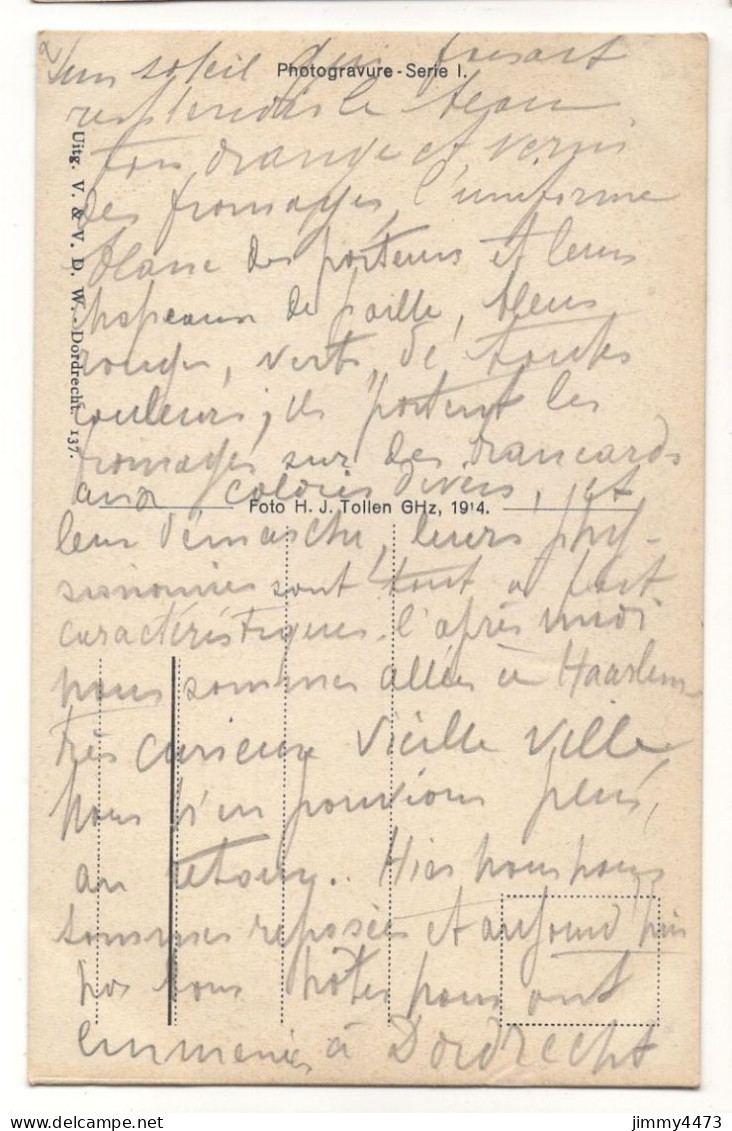 2
un soleil qui faisait
Photogravure - Serie I.
resplendir le beau
ton orange et verni
des fromages, l'uniforme
blanc des porteurs et leurs
chapeaux de paille, bleus
rouges, verts, de toutes
couleurs; ils portent les
fromages sur des brancards
aux coloris divers, et
Foto H. J. Tollen GHz, 1914.
leur démarche, leurs phy-
sionomies sont tout à fait
caractéristiques. l'après midi
nous sommes allées à Haarlem
très curieuse vieille ville
nous n'en pouvions plus,
au retour.. Hier nous nous
sommes reposées et aujourd'hui
nos bons hôtes nous ont
emmenées à Dordrecht
Uitg. V. & V. D. W. - Dordrecht. 137.
jimmy4473